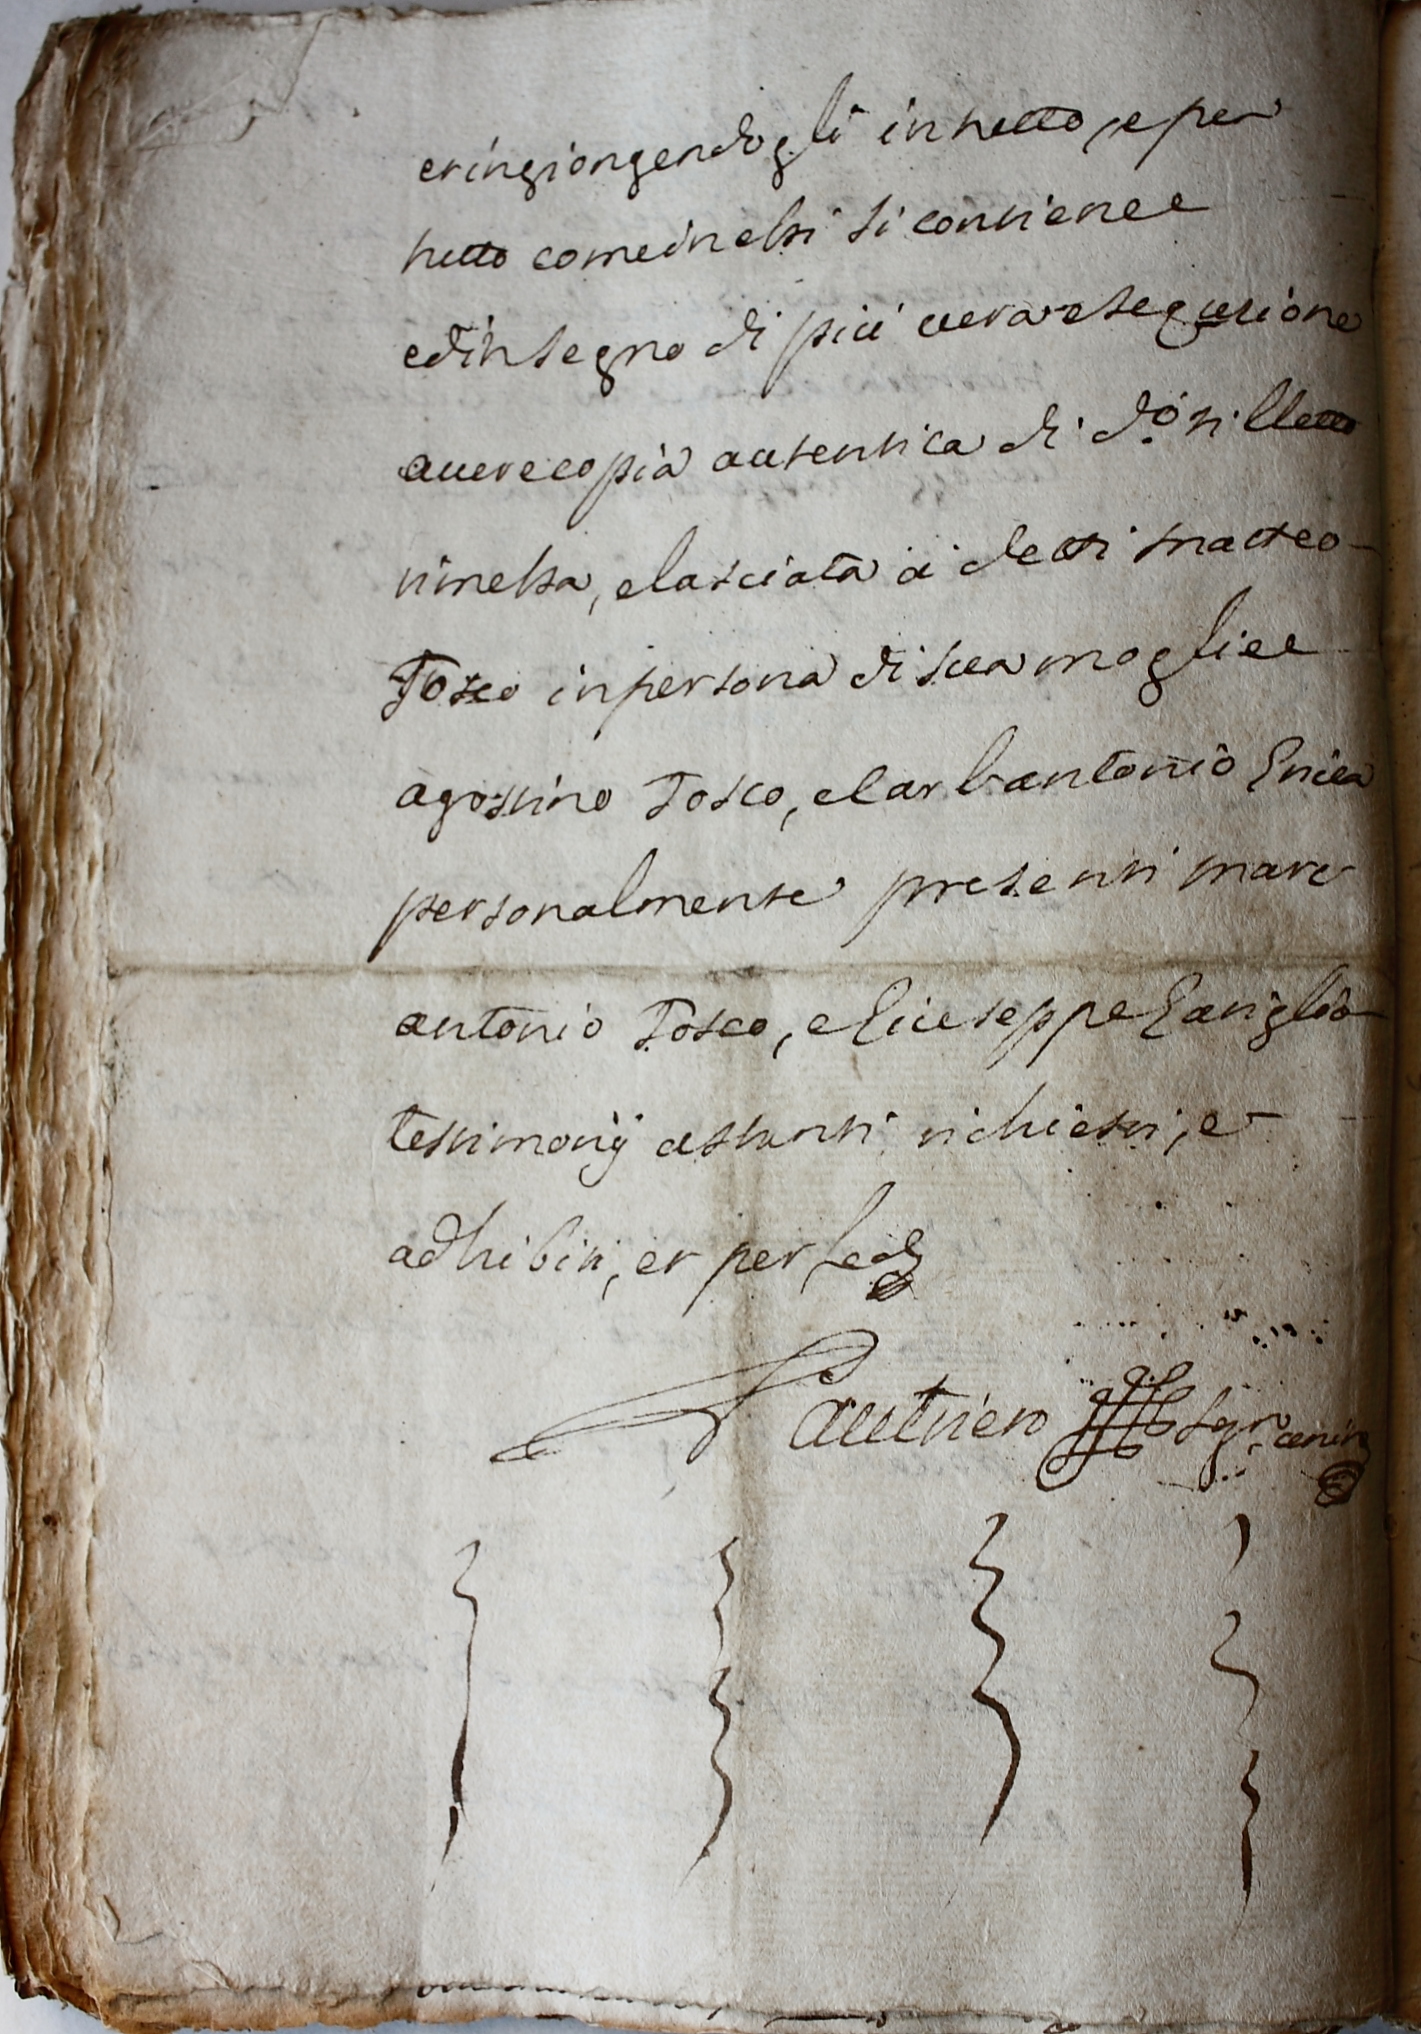 et ingiongendogli in tutto, e per
tutto come in essi si contiene e
ed in segno di più vera esequzione
auere copia autentica di d.o tilletto
rimessa, e lasciata a detti matteo
Tosco in persona di sua moglie e
agostino Tosco, e Carlantonio
personalmente presenti marc
antonio Tosco, e Giuseppe Gariglio
testimonij astanti richiesti, e
adhibiti, et per fede
Gautiero Segr.